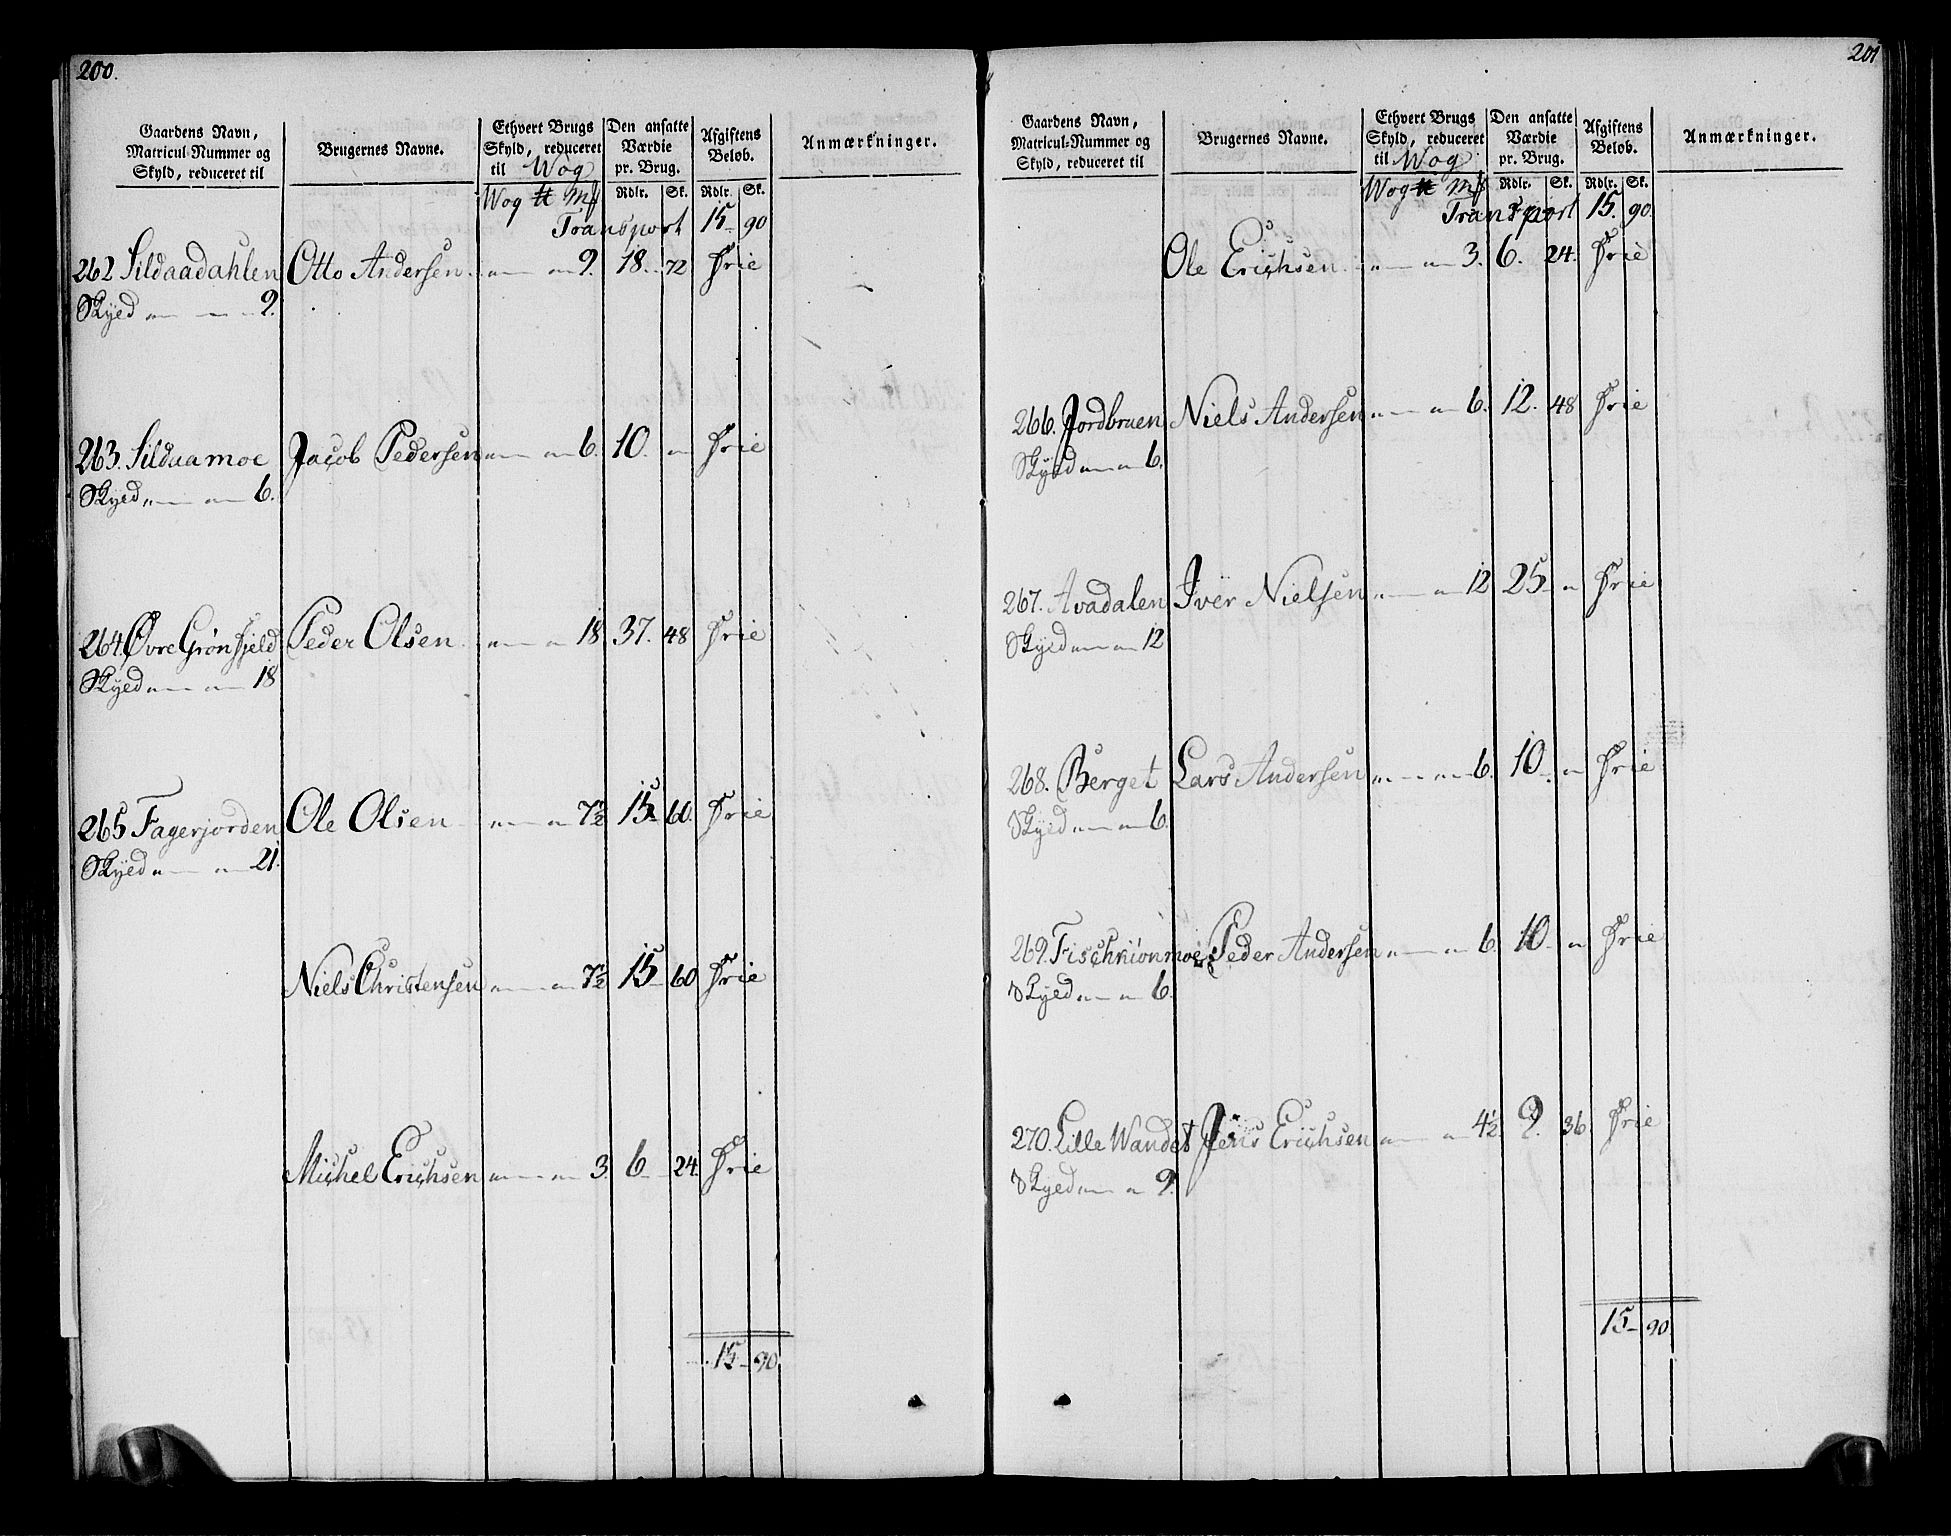 200.
Gaardens Navn, Matricul-Nummer og Skyld, reduceret til | Brugernes Navne. | Ethvert Brugs Skyld, reduceret til Wog | Den ansatte Værdie pr. Brug. | Afgiftens Beløb. | Anmærkninger.
Wog ℔ Mk | Rdlr. | Sk. | Rdlr. | Sk.
Transport 15 90
262 Sildaadahlen Otto Andersen " " 9. 18. 72 Frie
Skyed " " 9.
263. Sildaamoe Jacob Pedersen " " 6. 10. " Frie
Skyed " " 6.
264. Øvre Grønfjeld Peder Olsen " " 18 37. 48 Frie
Skyed " " 18
265 Fagerjorden Ole Olsen " " 7½ 15 60. Frie
Skyed " " 21.
Niels Christensen " " 7½ 15 60 Frie
Michel Erichsen " " 3. 6 24. Frie
15 90.
201
Gaardens Navn, Matricul-Nummer og Skyld, reduceret til | Brugernes Navne. | Ethvert Brugs Skyld, reduceret til Wog | Den ansatte Værdie pr. Brug. | Afgiftens Beløb. | Anmærkninger.
Wog ℔ Mk | Rdlr. | Sk. | Rdlr. | Sk.
Transport 15. 90.
Ole Erichsen " " 3. 6. 24. Frie
266. Jordbruen Niels Andersen " " 6. 12. 48 Frie
Skyed " " 6.
267. Avadalen Iver Nielsen " " 12 25 " Frie
Skyed " " 12
268. Berget Lars Andersen " " 6. 10 " Frie
Skyed " " 6.
269. Fischkiønmoe Peder Andersen " " 6. 10 " Frie
Skyed " " 6.
270. Lille Wandet Jens Erichsen " " 4½ 9. 36. Frie
Skyed " " 9.
15 90.